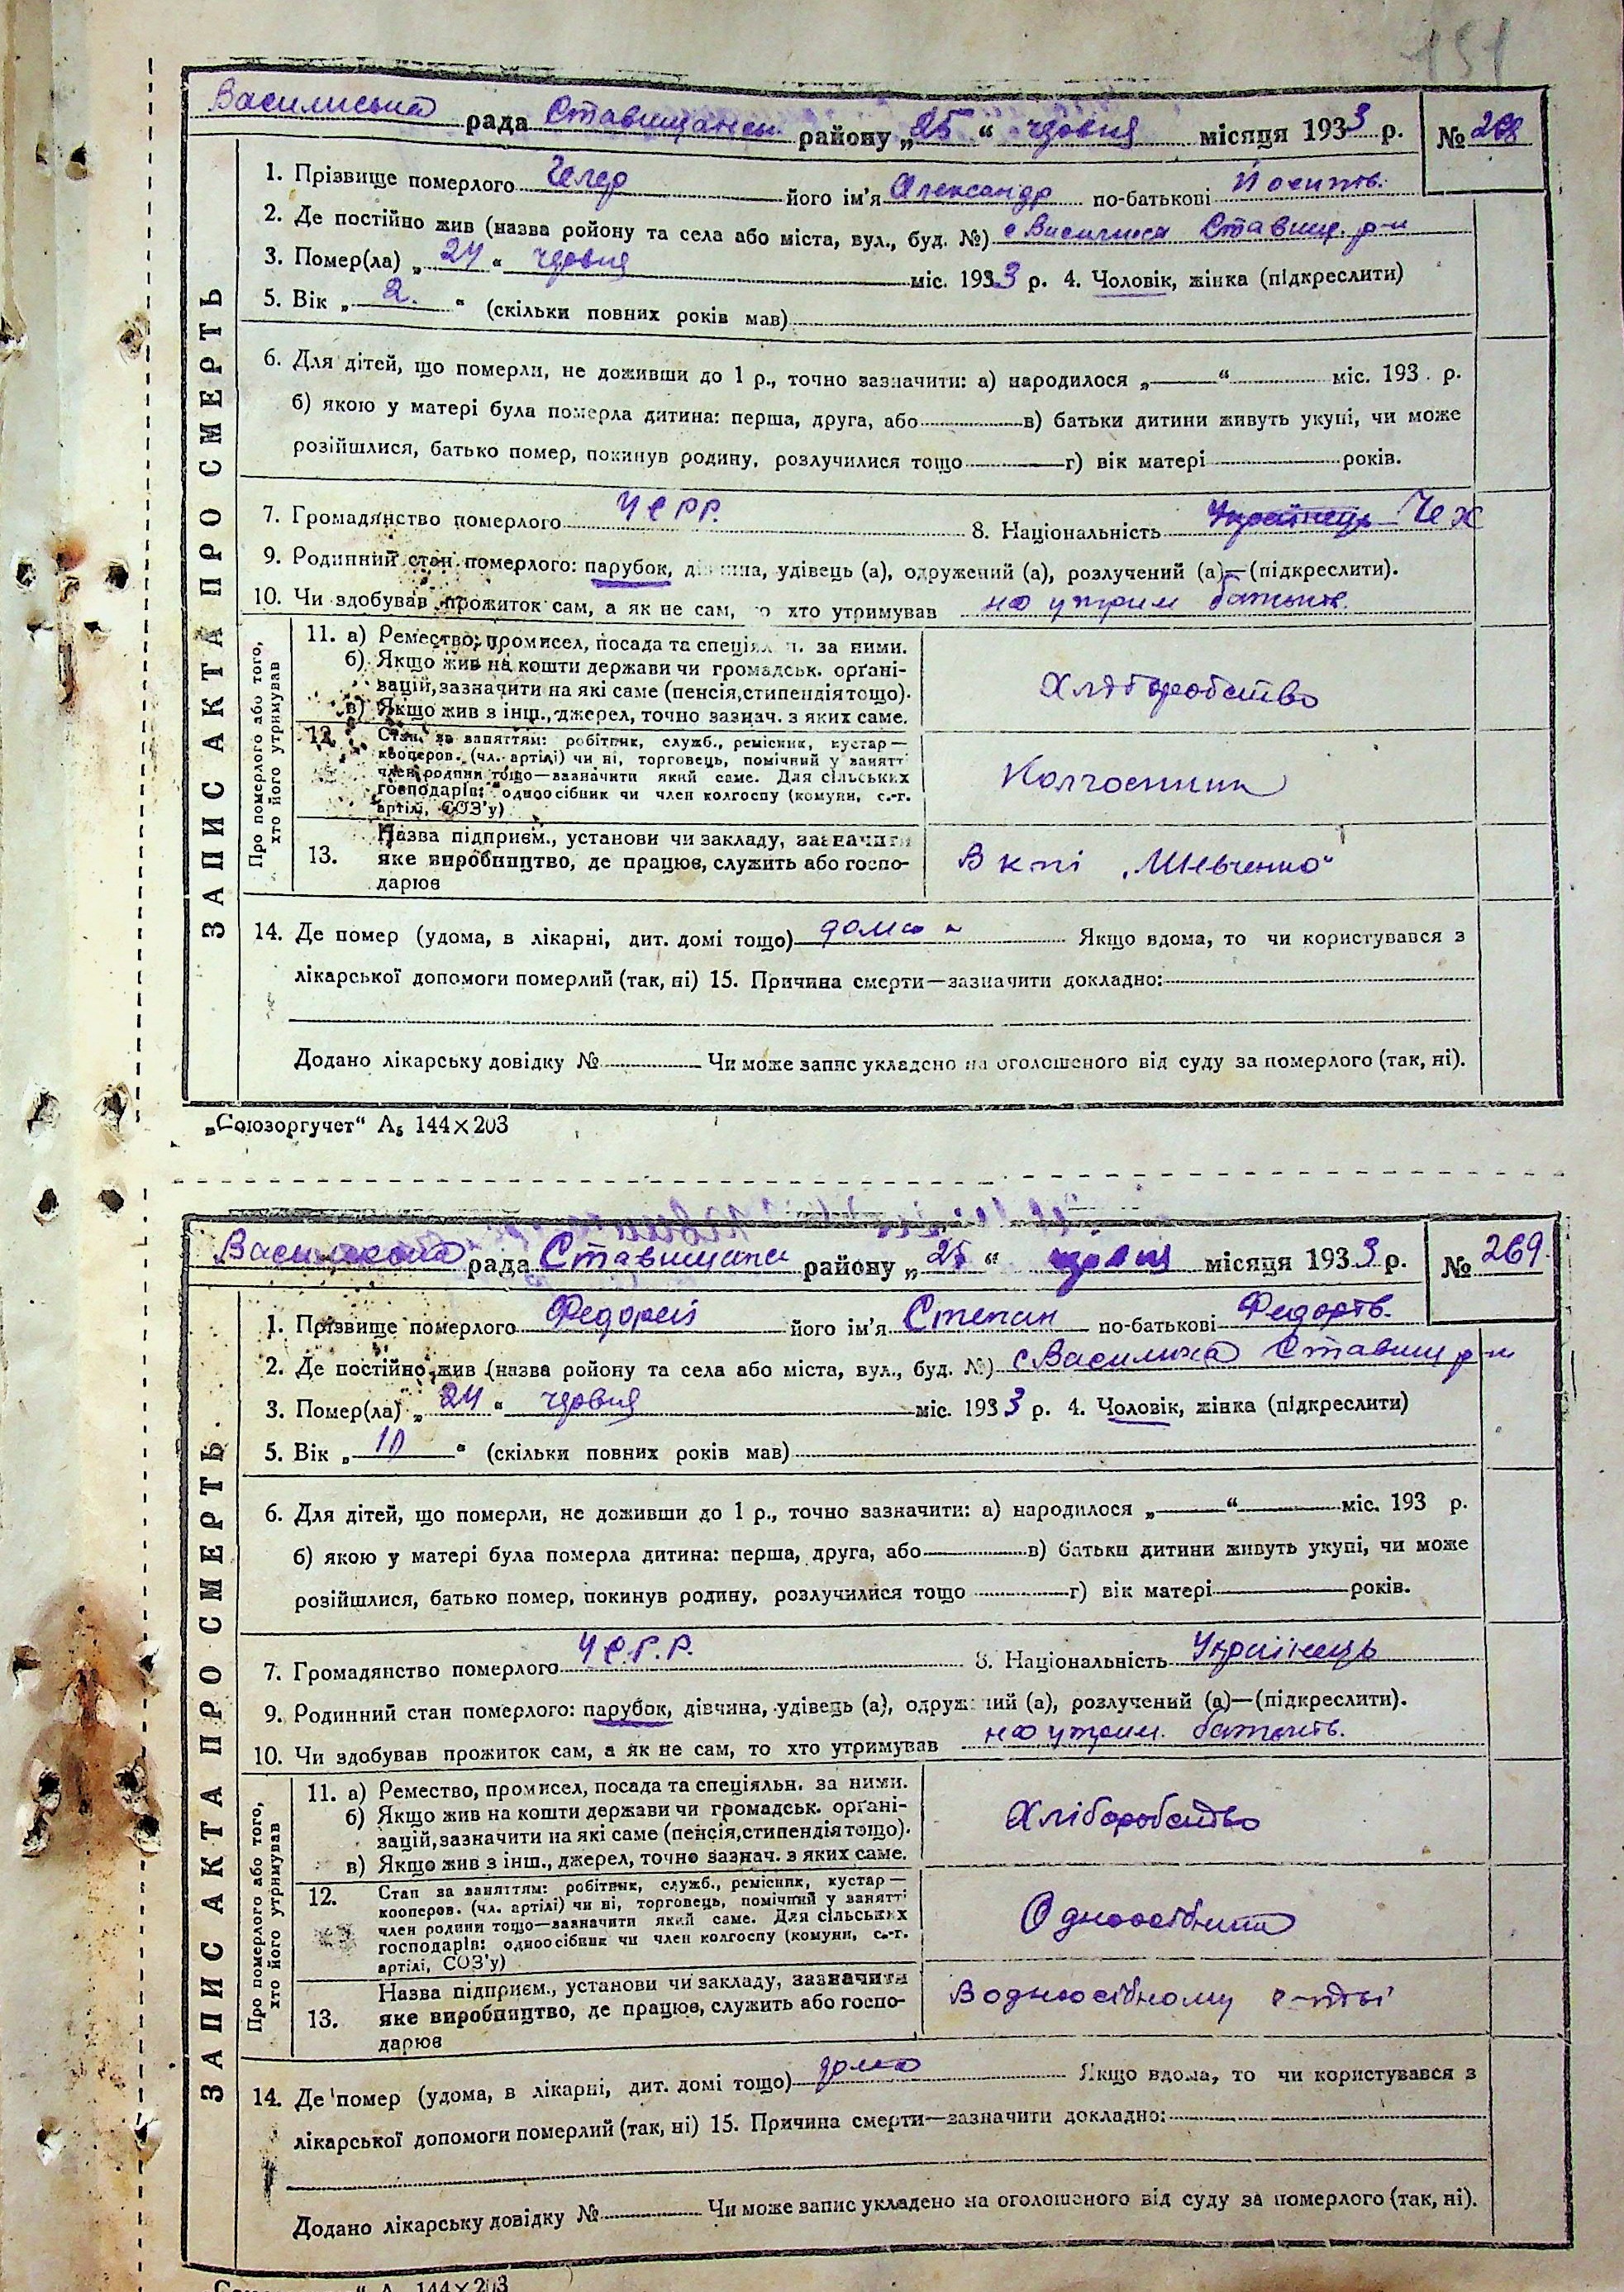 151
Василиська рада Ставищанськ. району „25“ червня місяця 1933 р. № 268
1. Прізвище померлого Челер його ім'я Олександр по-батькові Йосипов.
2. Де постійно жив (назва ройону та села або міста, вул., буд. №) с Василиха Ставищ. р-н
3. Помер(ла) „24“ червня міс. 1933 р. 4. Чоловік, жінка (підкреслити)
5. Вік „2.“ (скільки повних років мав)
6. Для дітей, що померли, не доживши до 1 р., точно зазначити: а) народилося „ “ міс. 193 . р.
б) якою у матері була померла дитина: перша, друга, або в) батьки дитини живуть укупі, чи може
розійшлися, батько помер, покинув родину, розлучилися тощо г) вік матері років.
7. Громадянство померлого УСРР. 8. Національність Українець Чех
9. Родинний стан померлого: парубок, дівчина, удівець (а), одружений (а), розлучений (а)—(підкреслити).
10. Чи здобував прожиток сам, а як не сам, то хто утримував на утрим батьків.
ЗАПИС АКТА ПРО СМЕРТЬ
Про померлого або того, хто його утримував
11. а) Ремество, промисел, посада та спеціяльн. за ними.
б) Якщо жив на кошти держави чи громадськ. орґані-
зацій, зазначити на які саме (пенсія, стипендія тощо).
в) Якщо жив з інш., джерел, точно зазнач. з яких саме.
Хліборобство
12. Стан за заняттям: робітник, служб., ремісник, кустар—
кооперов. (чл. артілі) чи ні, торговець, помічний у занятті
член родини тощо—зазначити який саме. Для сільських
господарів: одноосібник чи член колгоспу (комуни, с.-г.
артілі, СОЗ'у)
Колгоспник
13. Назва підприєм., установи чи закладу, зазначити
яке виробництво, де працює, служить або госпо-
дарює
В к-пі „Шевченко“
14. Де помер (удома, в лікарні, дит. домі тощо) дома Якщо вдома, то чи користувався з
лікарської допомоги померлий (так, ні) 15. Причина смерти—зазначити докладно:
Додано лікарську довідку № Чи може запис укладено на оголошеного від суду за померлого (так, ні).
„Союзоргучет“ А₅ 144×203
рада Ставищанськ району „25“ червня місяця 1933 р. № 269.
1. Прізвище померлого Федорей його ім'я Степан по-батькові Федоров.
2. Де постійно жив (назва ройону та села або міста, вул., буд. №) с Василиха Ставищ р-н
3. Помер(ла) „24“ червня міс. 1933 р. 4. Чоловік, жінка (підкреслити)
5. Вік „10“ (скільки повних років мав)
6. Для дітей, що померли, не доживши до 1 р., точно зазначити: а) народилося „ “ міс. 193 р.
б) якою у матері була померла дитина: перша, друга, або в) батьки дитини живуть укупі, чи може
розійшлися, батько помер, покинув родину, розлучилися тощо г) вік матері років.
7. Громадянство померлого УСРР. 8. Національність Українець
9. Родинний стан померлого: парубок, дівчина, удівець (а), одружений (а), розлучений (а)—(підкреслити).
10. Чи здобував прожиток сам, а як не сам, то хто утримував на утрим. батьків.
ЗАПИС АКТА ПРО СМЕРТЬ
Про померлого або того, хто його утримував
11. а) Ремество, промисел, посада та спеціяльн. за ними.
б) Якщо жив на кошти держави чи громадськ. орґані-
зацій, зазначити на які саме (пенсія, стипендія тощо).
в) Якщо жив з інш., джерел, точно зазнач. з яких саме.
Хліборобство
12. Стан за заняттям: робітник, служб., ремісник, кустар—
кооперов. (чл. артілі) чи ні, торговець, помічний у занятті
член родини тощо—зазначити який саме. Для сільських
господарів: одноосібник чи член колгоспу (комуни, с.-г.
артілі, СОЗ'у)
Одноосібник
13. Назва підприєм., установи чи закладу, зазначити
яке виробництво, де працює, служить або госпо-
дарює
В одноосібному
14. Де помер (удома, в лікарні, дит. домі тощо) дома Якщо вдома, то чи користувався з
лікарської допомоги померлий (так, ні) 15. Причина смерти—зазначити докладно:
Додано лікарську довідку № Чи може запис укладено на оголошеного від суду за померлого (так, ні).
А₅ 144×203